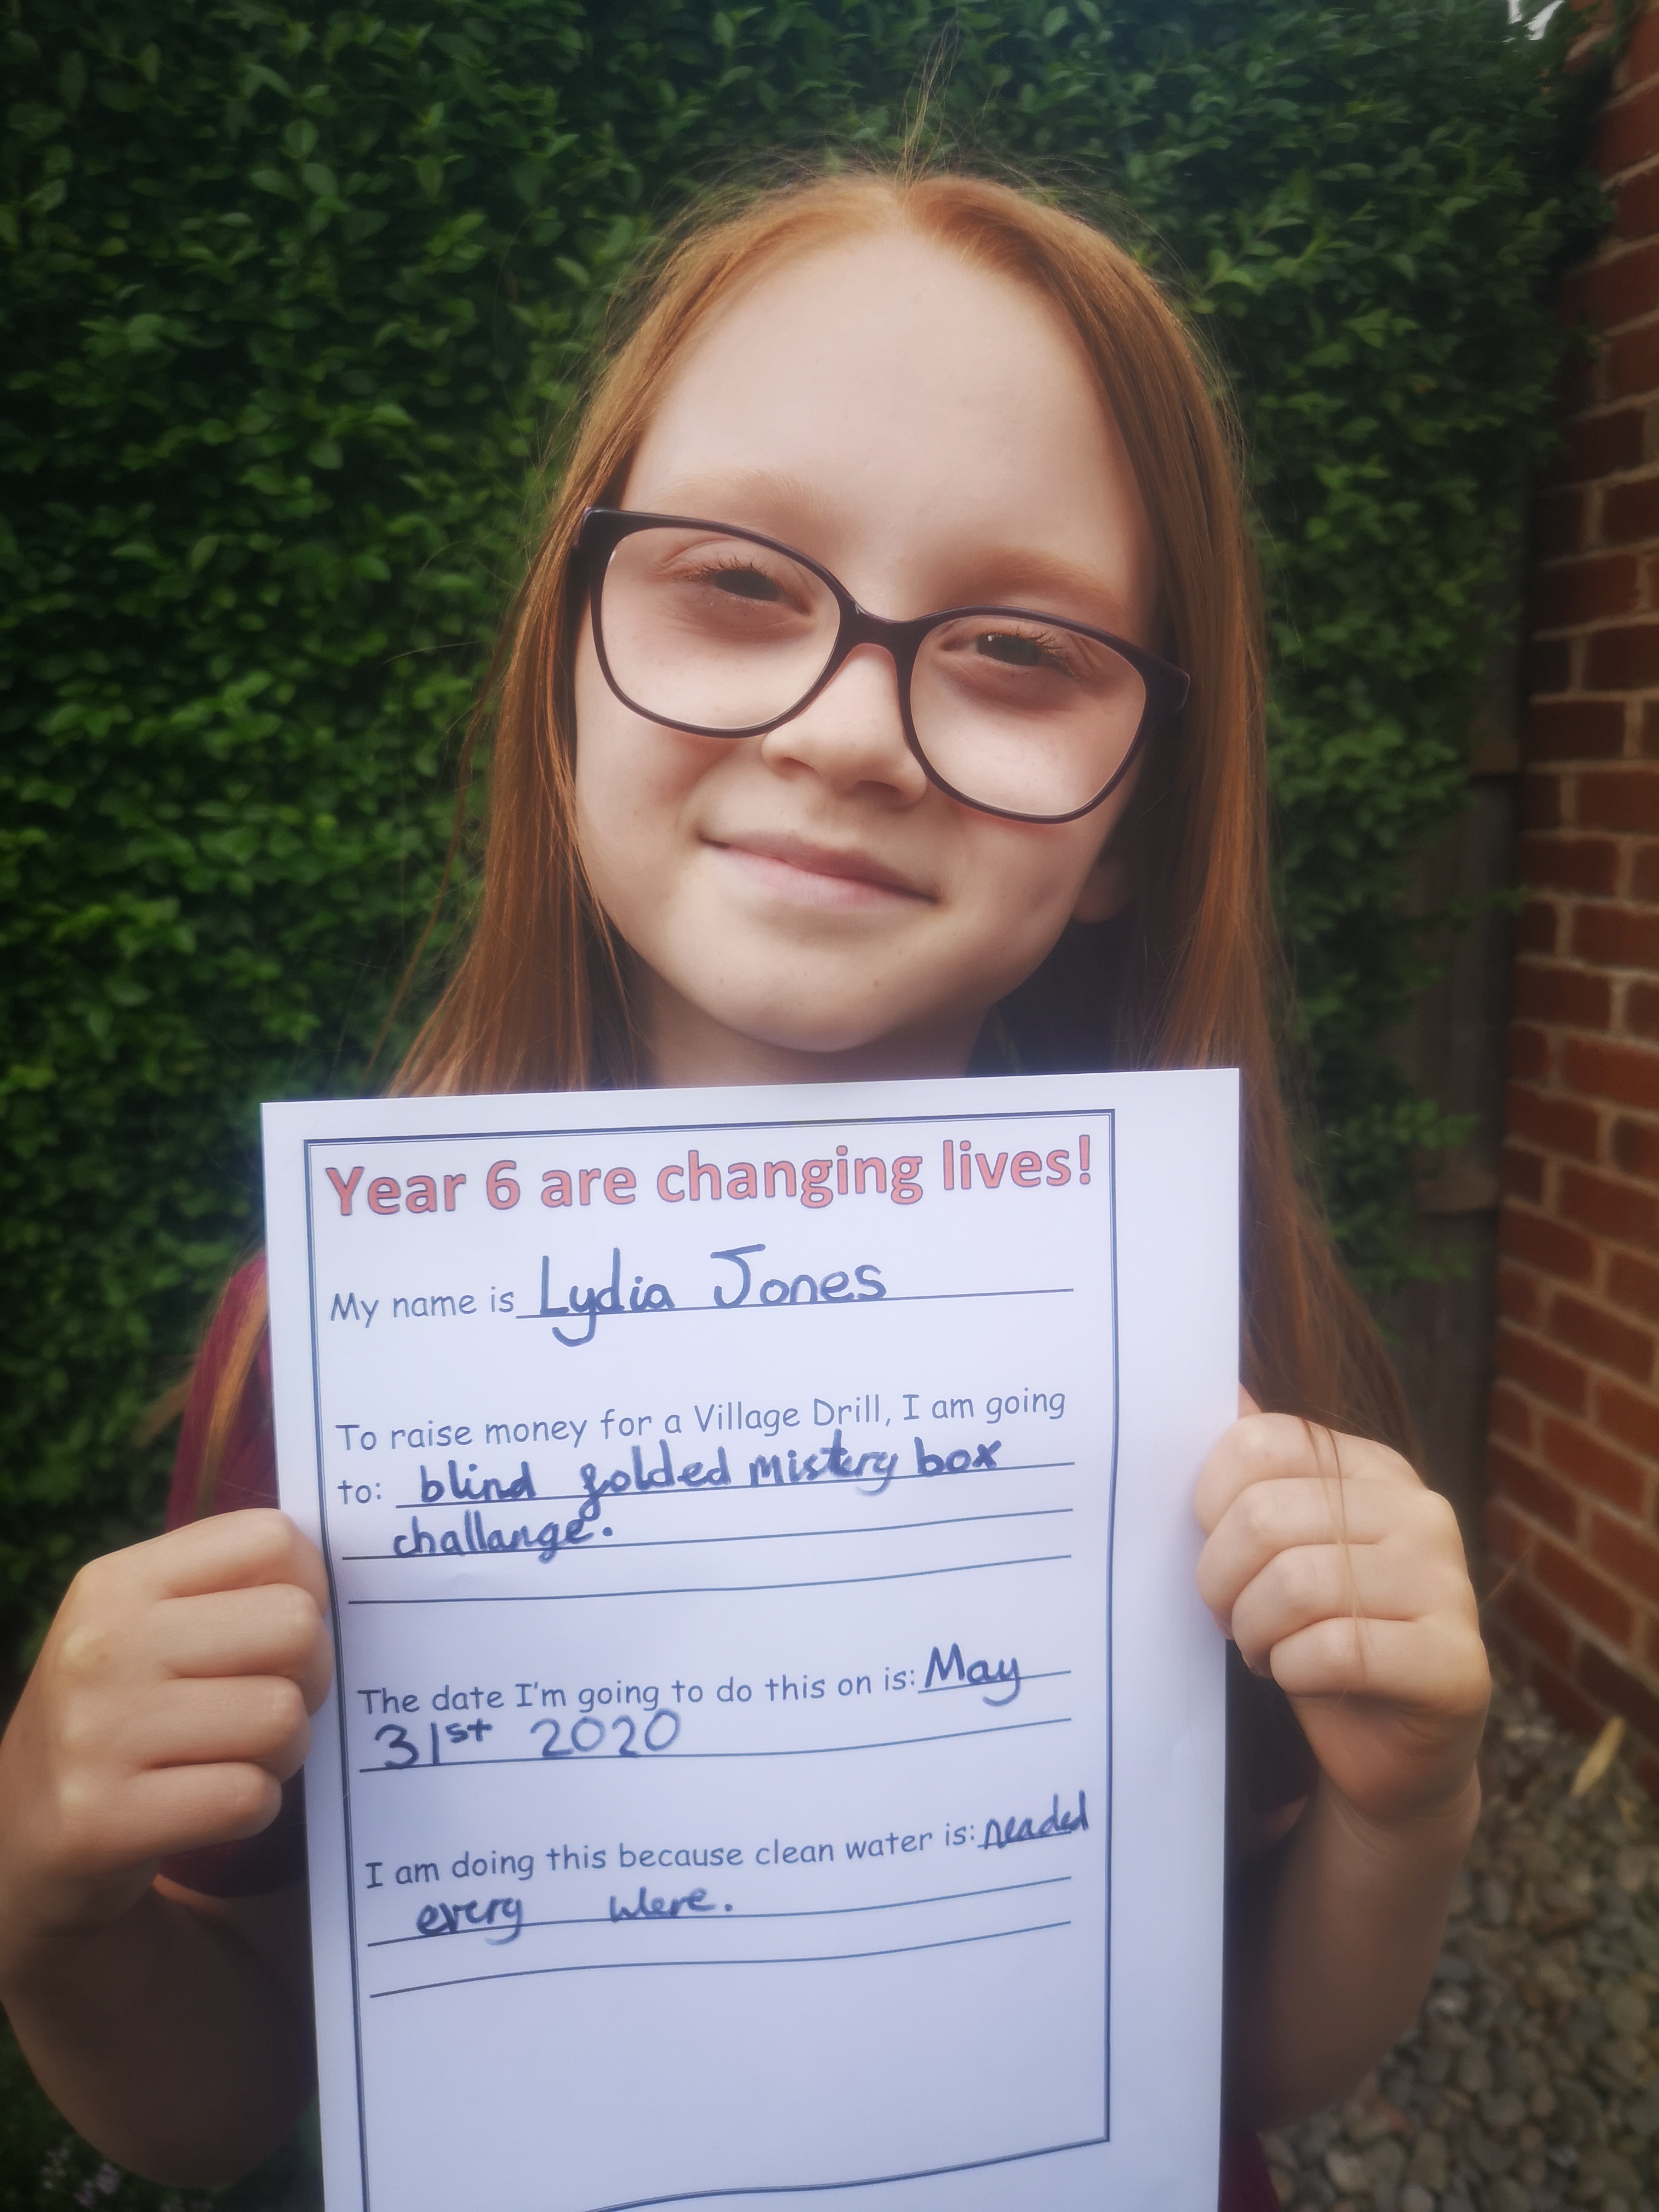 Year 6 are changing lives!
My name is Lydia Jones
To raise money for a Village Drill, I am going
to: blind folded mistery box
challange.
The date I'm going to do this on is: May
31st 2020
I am doing this because clean water is: neaded
every were.